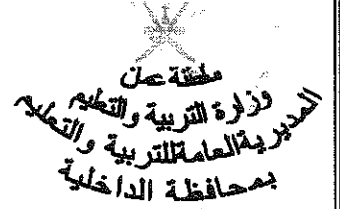 سلطنة عمان
وزارة التربية والتعليم
المديرية العامة للتربية والتعليم
بمحافظة الداخلية